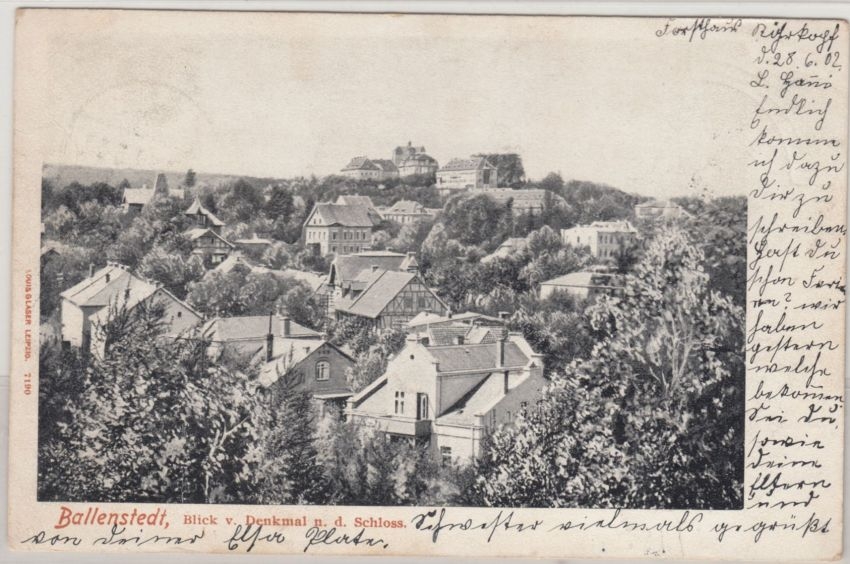 Forsthaus Röhrkopf
d. 28. 6. 02.
L. Hänsi
Endlich
komme
ich dazu
Dir zu
schreiben.
Hast Du
schon Feri-
en? wir
haben
gestern
welche
bekom̅en
Sei du,
sowie
deine
Eltern
und
Schwester vielmals gegrüßt
von deiner Elsa Plate.
Ballenstedt, Blick v. Denkmal n. d. Schloss.
LOUIS GLASER LEIPZIG. 7190